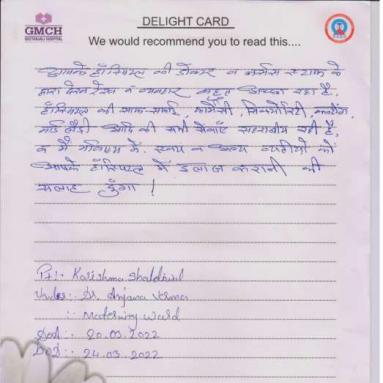 GMCH
GEETANJALI HOSPITAL
DELIGHT CARD
We would recommend you to read this....
आपके हॉस्पिटल की डॉक्टर व नर्सिंग स्टाफ के
द्वारा देखरेख व व्यवहार बहुत अच्छा रहा है,
हॉस्पिटल की साफ-सफाई, फार्मेसी, सिक्योरिटी,
आदि की सभी सेवाएं सराहनीय रही है,
व मैं भविष्य में, स्वयं व अन्य व्यक्तियों को
आपके हॉस्पिटल में इलाज कराने की
सलाह दुंगा !
Pt:- Karishma
Under:- Dr. Anjana Verma
:- Maternity Ward
DOA:- 20.03.2022
DOD:- 24.03.2022